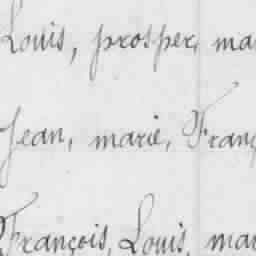 Louis, prosper, ma
Jean, marie, Franç
François, Louis, mar